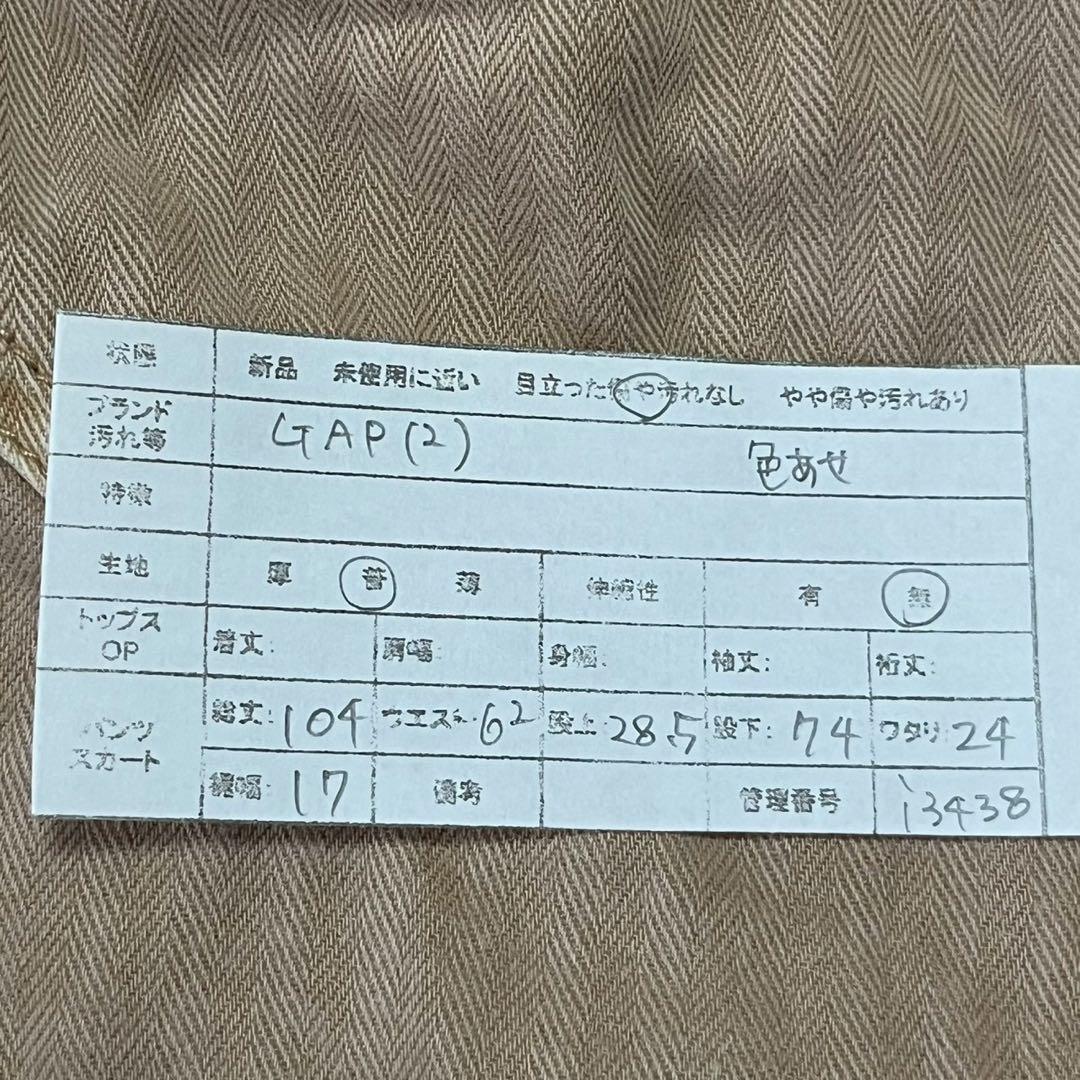 状態 新品 未使用に近い 目立った傷や汚れなし やや傷や汚れあり
ブランド
汚れ等 GAP(2) 色あせ
特徴
生地 厚 普 薄 伸縮性 有 無
トップス
OP 着丈: 肩幅: 身幅: 袖丈: 裄丈:
パンツ
スカート 総丈:104 ウエスト:62 股上:28.5 股下:74 ワタリ:24
裾幅:17 備考 管理番号 i3438